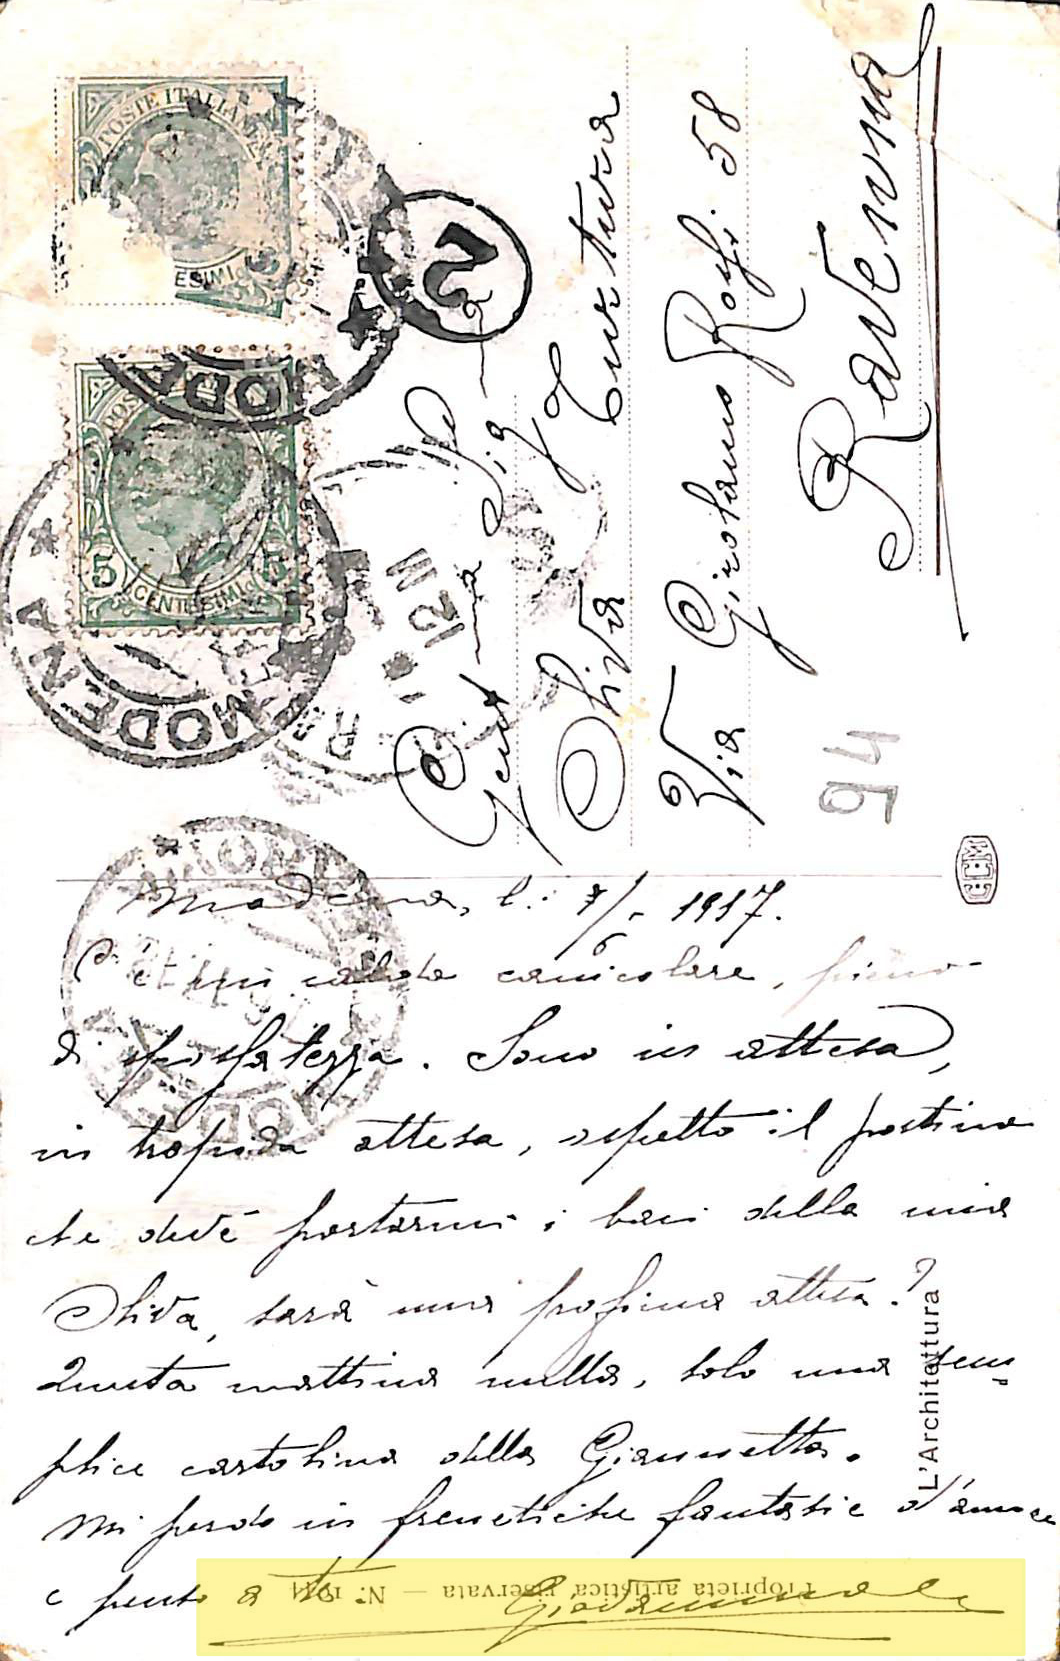 POSTE ITALIANE
CENTESIMI
POSTE
5 5
CENTESIMI
MODENA
MODENA
2
12 III
Gent ma Sig na
Oliva Turtura
Via Girolamo Rossi. 58
Ravenna
94
CCM
Modena, li: 7/6 - 1917.
canicolare, pieno
di spossatezza. Sono in attesa,
in trepida attesa, aspetto il postino
che deve portarmi i baci della mia
Oliva, sarà una prossima attesa?
Questa mattina nulla, solo una sem
plice cartolina della Giannetta.
Mi perdo in frenetiche fantasie d'amore
e penso a te.
Giovanni
L'Architettura
Proprietà artistica riservata — N.